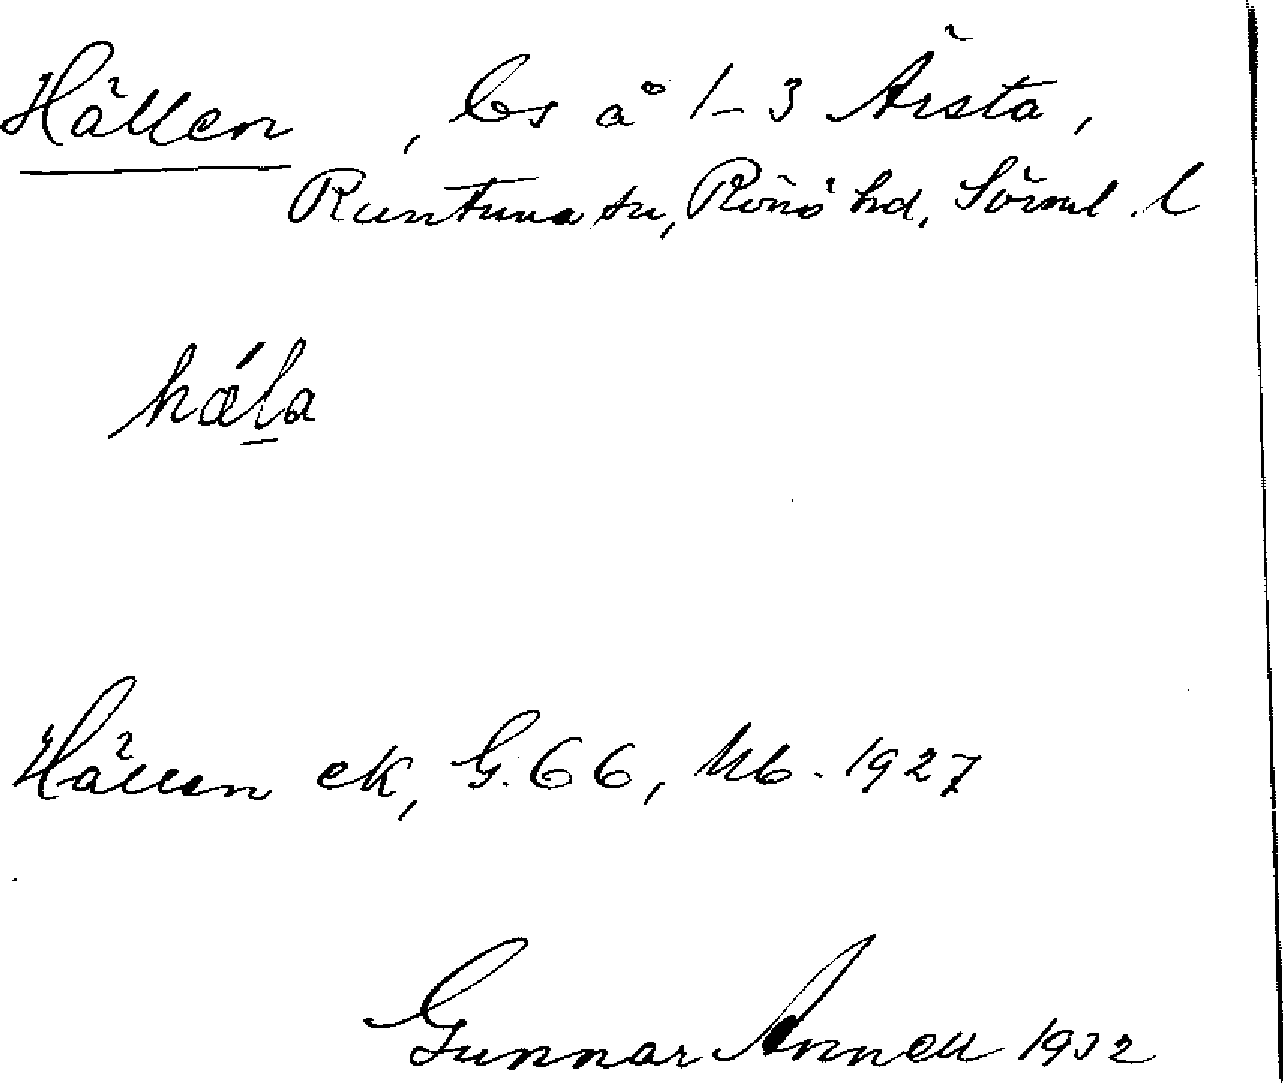 Hällen, ls å 1-3 Ärsta,
Runtuna sn, Rönö hd, Sörml. l
hǽla
Hällen ek, G. 66, Ub. 1927
Gunnar Annell 1932